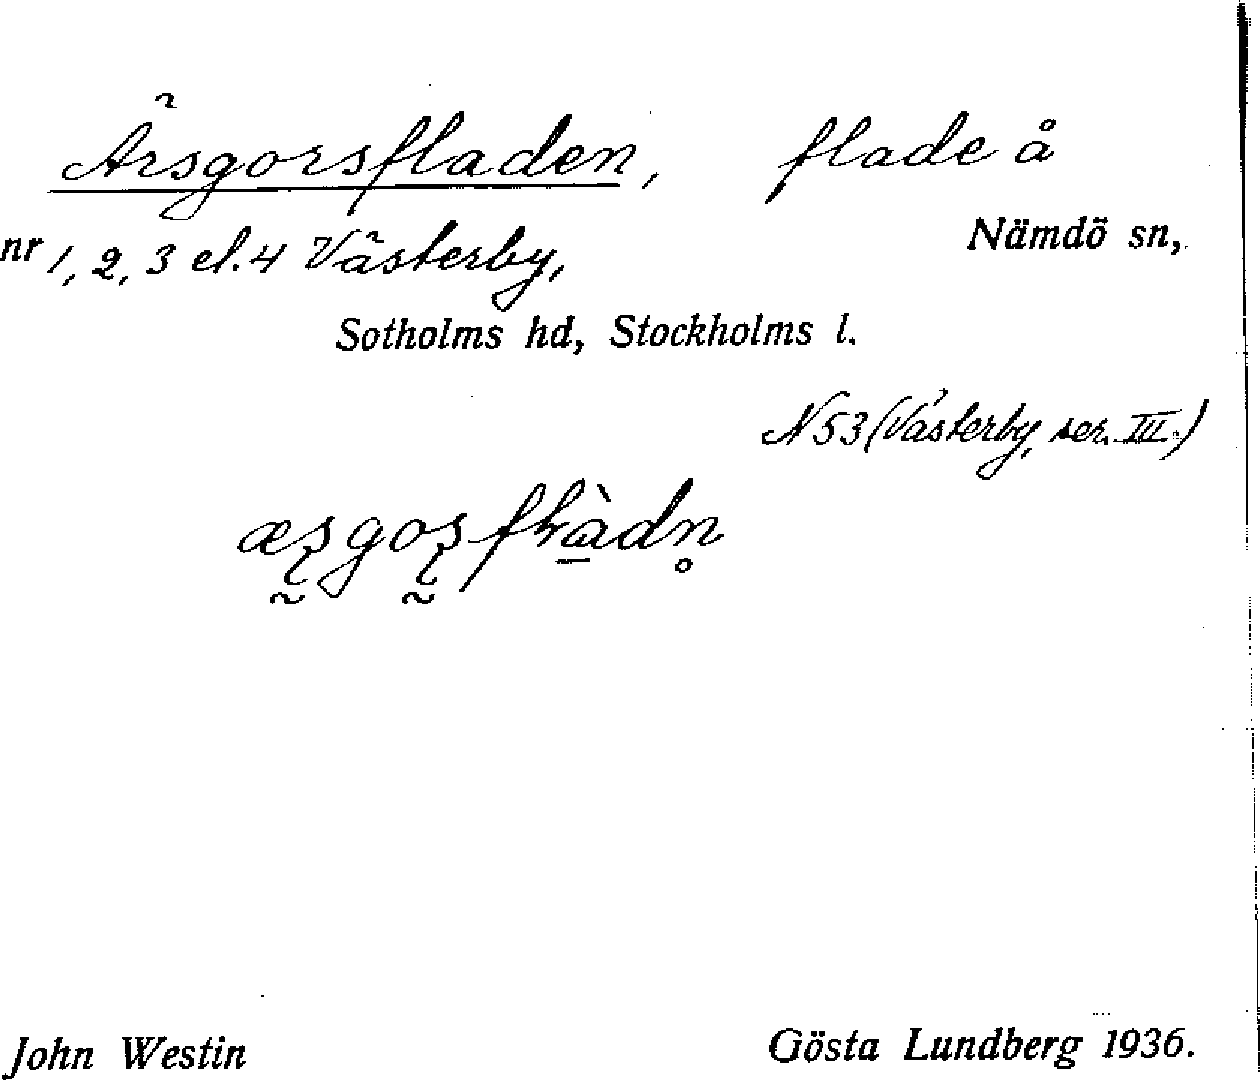 Ärsgorsfladen, flade å
nr 1, 2, 3 el. 4 Västerby, Nämdö sn,
Sotholms hd, Stockholms l.
N 53 (Västerby, ser. III.)
John Westin Gösta Lundberg 1936.